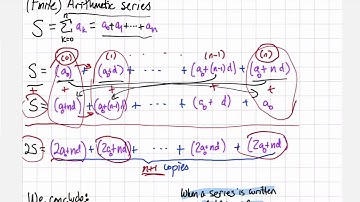 (Finite) Arithmetic series
S = ∑ₖ₌₀ⁿ aₖ = a₀+a₁+⋯+aₙ
(0) (1) (n-1) (n)
S = (a₀) + (a₀+d) + ⋯ ⋯ + (a₀+(n-1)d) + (a₀+nd)
+ + + + +
S = (a₀+nd) + (a₀+(n-1)d) + ⋯ ⋯ + (a₀+ d) + a₀
2S = (2a₀+nd) + (2a₀+nd) + ⋯ ⋯ + (2a₀+nd) + (2a₀+nd)
n+1 copies
We conclude:
When a series is written